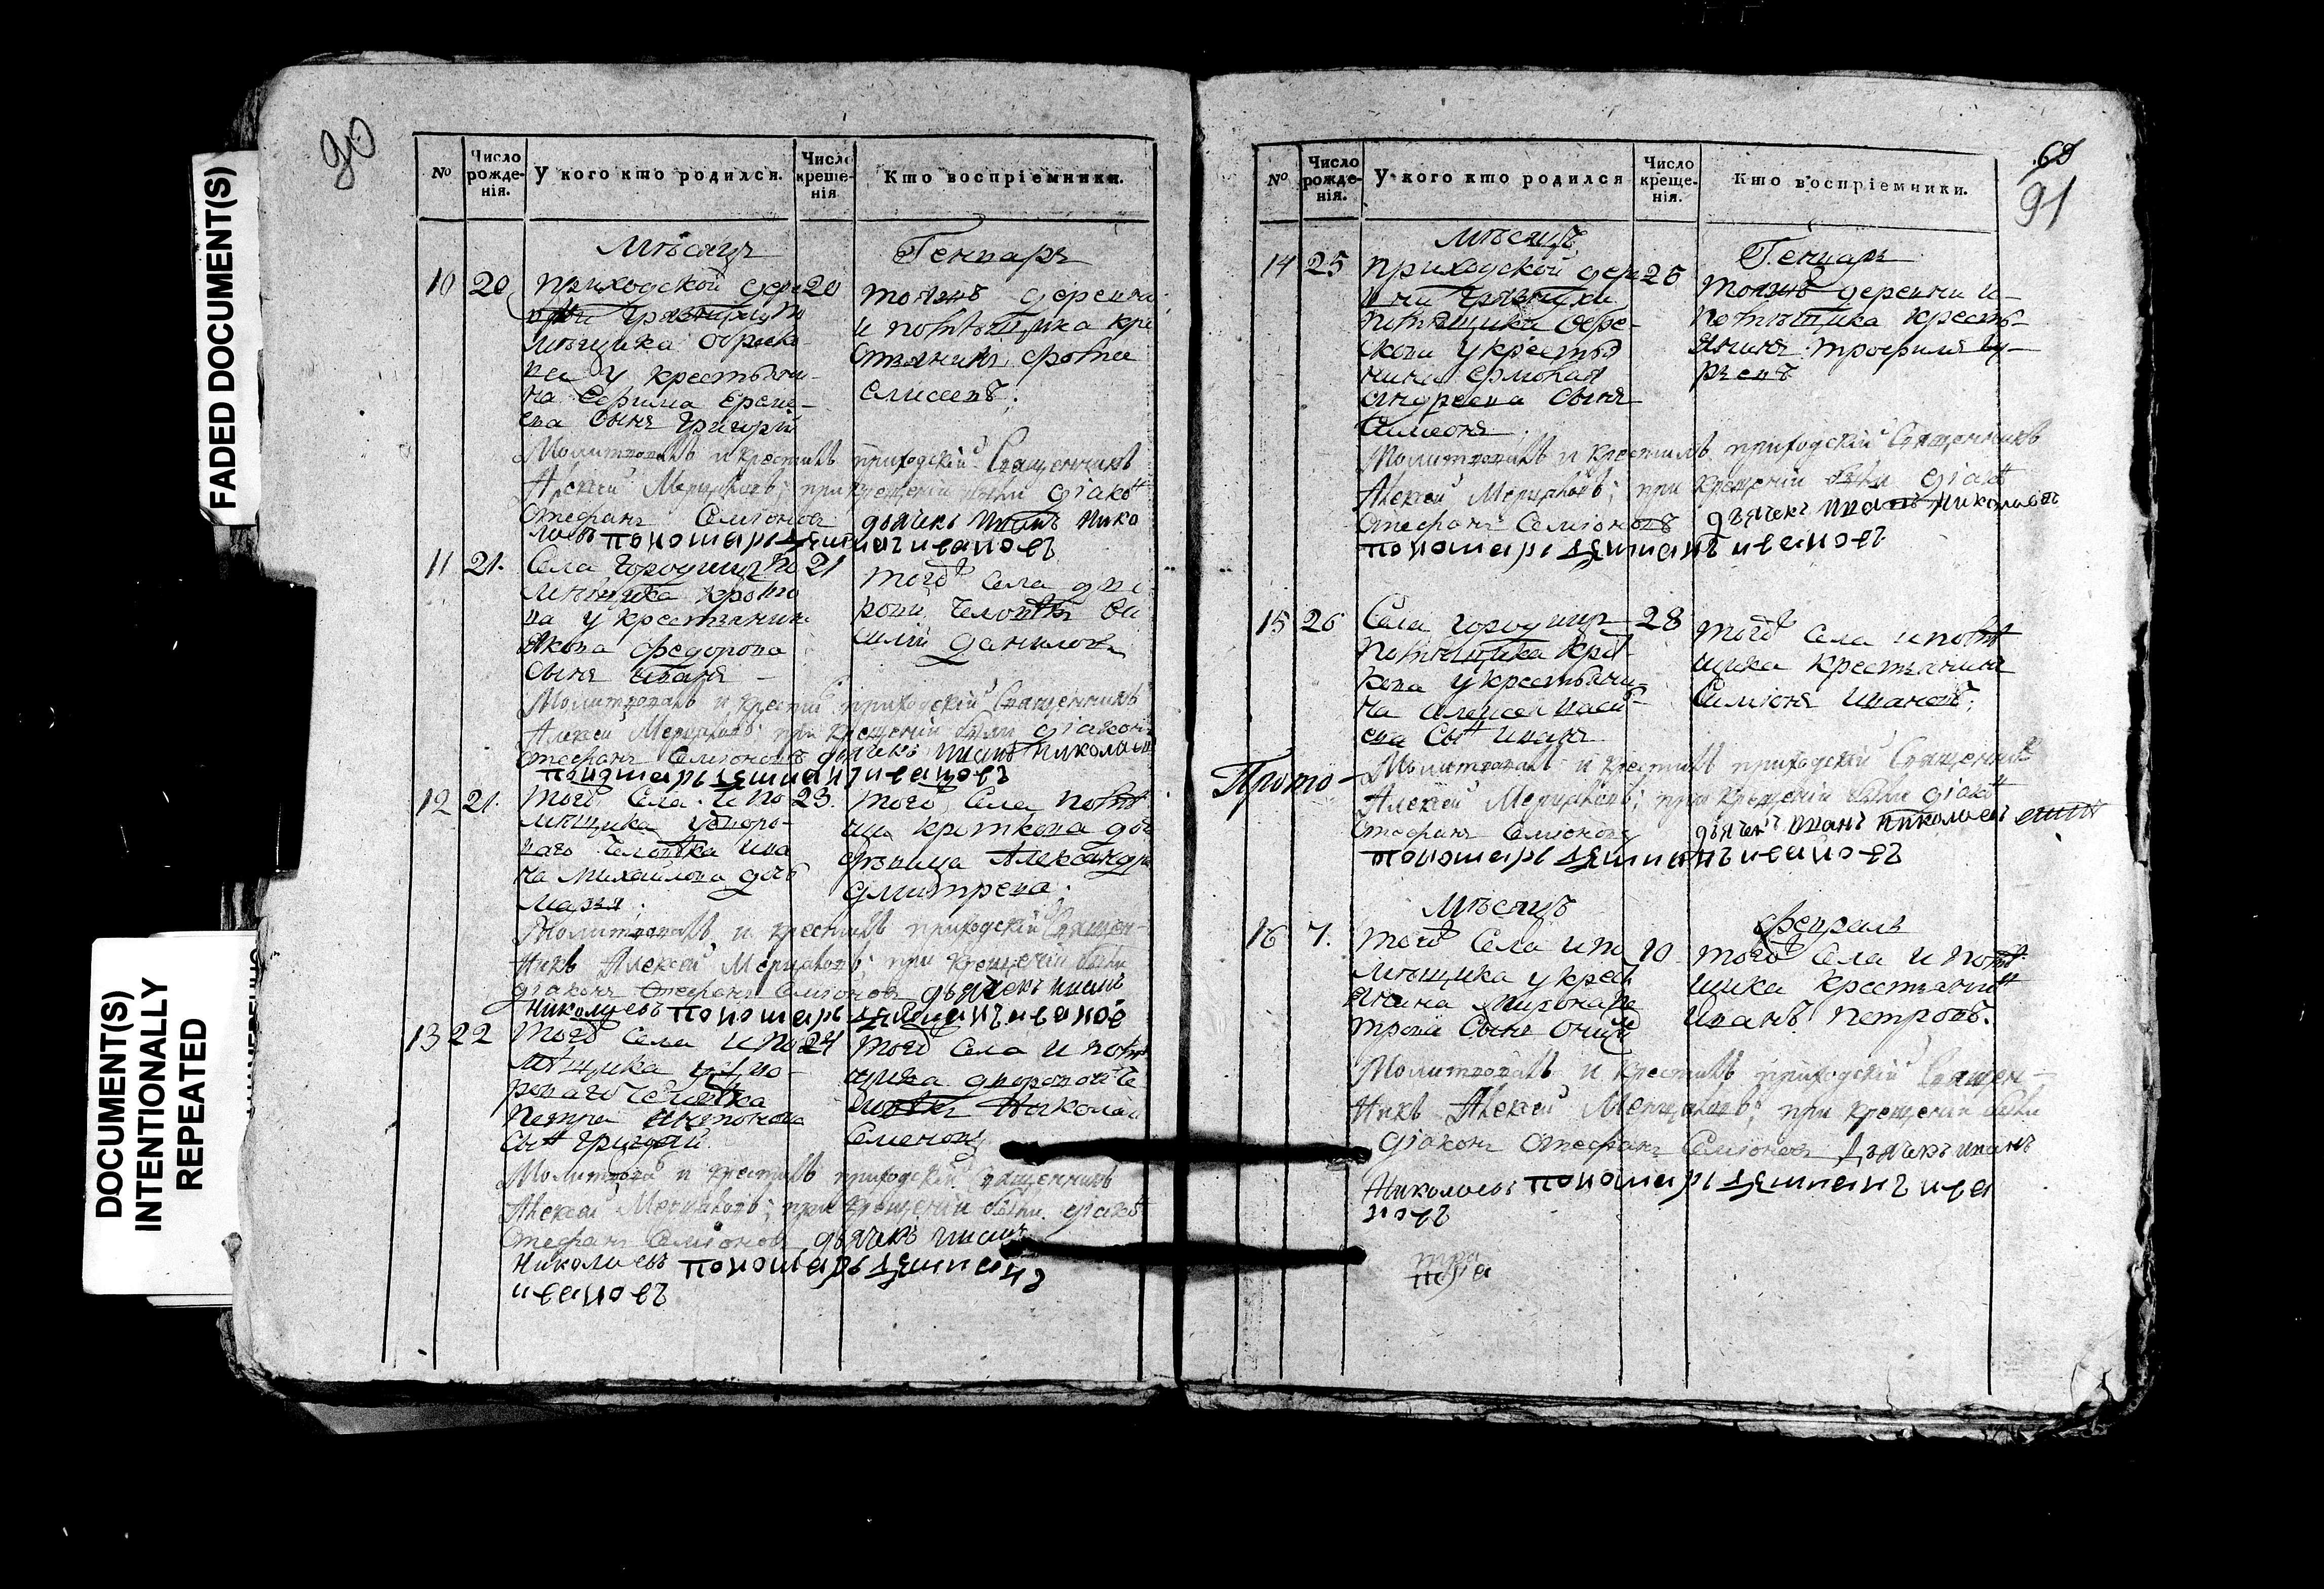 FADED DOCUMENT(S)
DOCUMENT(S)
INTENTIONALLY
REPEATED
90
№
Число рожде-нія.
У кого кто родился.
Число креще-нія
Кто воспріемники.
Мѣсяцъ
Генварь
10 20
приходской дере
20
Мѣщика
на у крестьяни-
на Ефима
ева сынъ Григорій
тояжъ деревни
и помѣщика кре
стьянинъ Фома
Елисеевъ.
Молитвовалъ и крестилъ приходскій Священникъ
Алексѣй Мерцаловъ; при крещеніи были діаконъ
Стефанъ Семіоновъ дьячекъ Иванъ Нико
лаевъ пономарь Иванов
11 21.
Села Городищъ по
21
мѣщика
на у крестьянина
Якова Федорова
сынъ Иванъ
того села дво
ровый человѣкъ Ва
силій Даниловъ
Молитвовалъ и крестилъ приходскій Священникъ
Алексѣй Мерцаловъ; при крещеніи были діаконъ
Стефанъ Семіоновъ дьячекъ Иванъ Николаевъ
пономарь Ивановъ
12 21.
Того села и по
23.
мѣщика у дворо-
ваго человѣка Ива
на Михайлова дочь
Марья.
того села помѣ
щика Кроткова дво
Александра
Дмитрева.
Молитвовалъ и крестилъ приходскій Священ-
никъ Алексѣй Мерцаловъ; при крещеніи были
діаконъ Стефанъ Семіоновъ дьячекъ Иванъ
Николаевъ пономарь Ивановъ
13 22
Того села и по
24
мѣщика у дво-
роваго человѣка
Петра Антонова
сынъ Григорій
того села и помѣ
щика двороваой че
ловѣкъ Николай
Семеновъ
Молитвовалъ и крестилъ приходскій Священникъ
Алексѣй Мерцаловъ; при крещеніи были діаконъ
Стефанъ Семіоновъ дьячекъ Иванъ
Николаевъ пономарь
Ивановъ
68
91
№
Число рожде-нія.
У кого кто родился
Число креще-нія.
Кто воспріемники.
Мѣсяцъ
Генварь
14 25
приходской дере
25
вни
помѣщика
у крестья
нина Ермолая
Андреева сынъ
Симеонъ.
тояжъ деревни и
помѣщика кресть-
янинъ Трофимъ
Молитвовалъ и крестилъ приходскій Священникъ
Алексѣй Мерцаловъ; при крещеніи были діаконъ
Стефанъ Семіоновъ дьячекъ Иванъ Николаевъ
пономарь Ивановъ
15 26
Села Городищъ
28
помѣщика Крот
кова у крестьяни-
на Алексея Васи
ева сынъ Иванъ
того села и помѣ
щика крестьянинъ
Симіонъ Ивановъ.
Прото-
Молитвовалъ и крестилъ приходскій Священникъ
Алексѣй Мерцаловъ; при крещеніи были діаконъ
Стефанъ Семіоновъ дьячекъ Иванъ Николаевъ
пономарь Ивановъ
Мѣсяцъ
Февраль
16 7.
Того села и по
10
мѣщика у крест
янина Мирона Пе
трова сынъ
того села и помѣ
щика крестьянинъ
Иванъ Петровъ.
Молитвовалъ и крестилъ приходскій Священ-
никъ Алексѣй Мерцаловъ; при крещеніи были
діаконъ Стефанъ Семіоновъ дьячекъ Иванъ
Николаевъ пономарь Ива
новъ